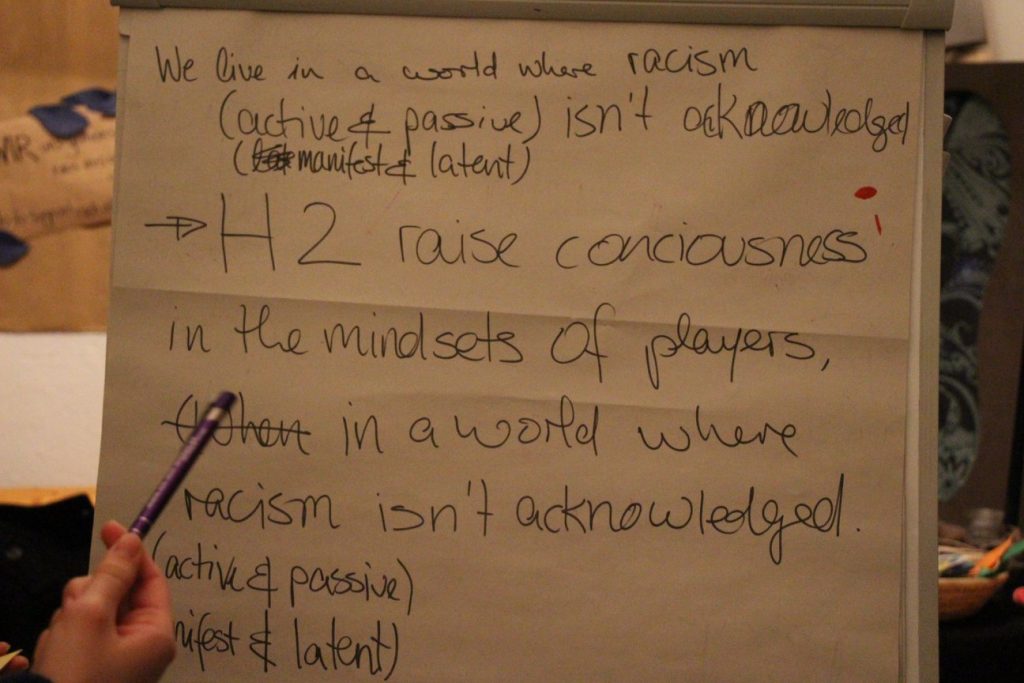 We live in a world where racism
(active & passive) isn't acknowledged
(manifest & latent)
→ H2 raise conciousness
in the mindsets of players,
When in a world where
racism isn't acknowledged.
(active & passive)
nifest & latent)